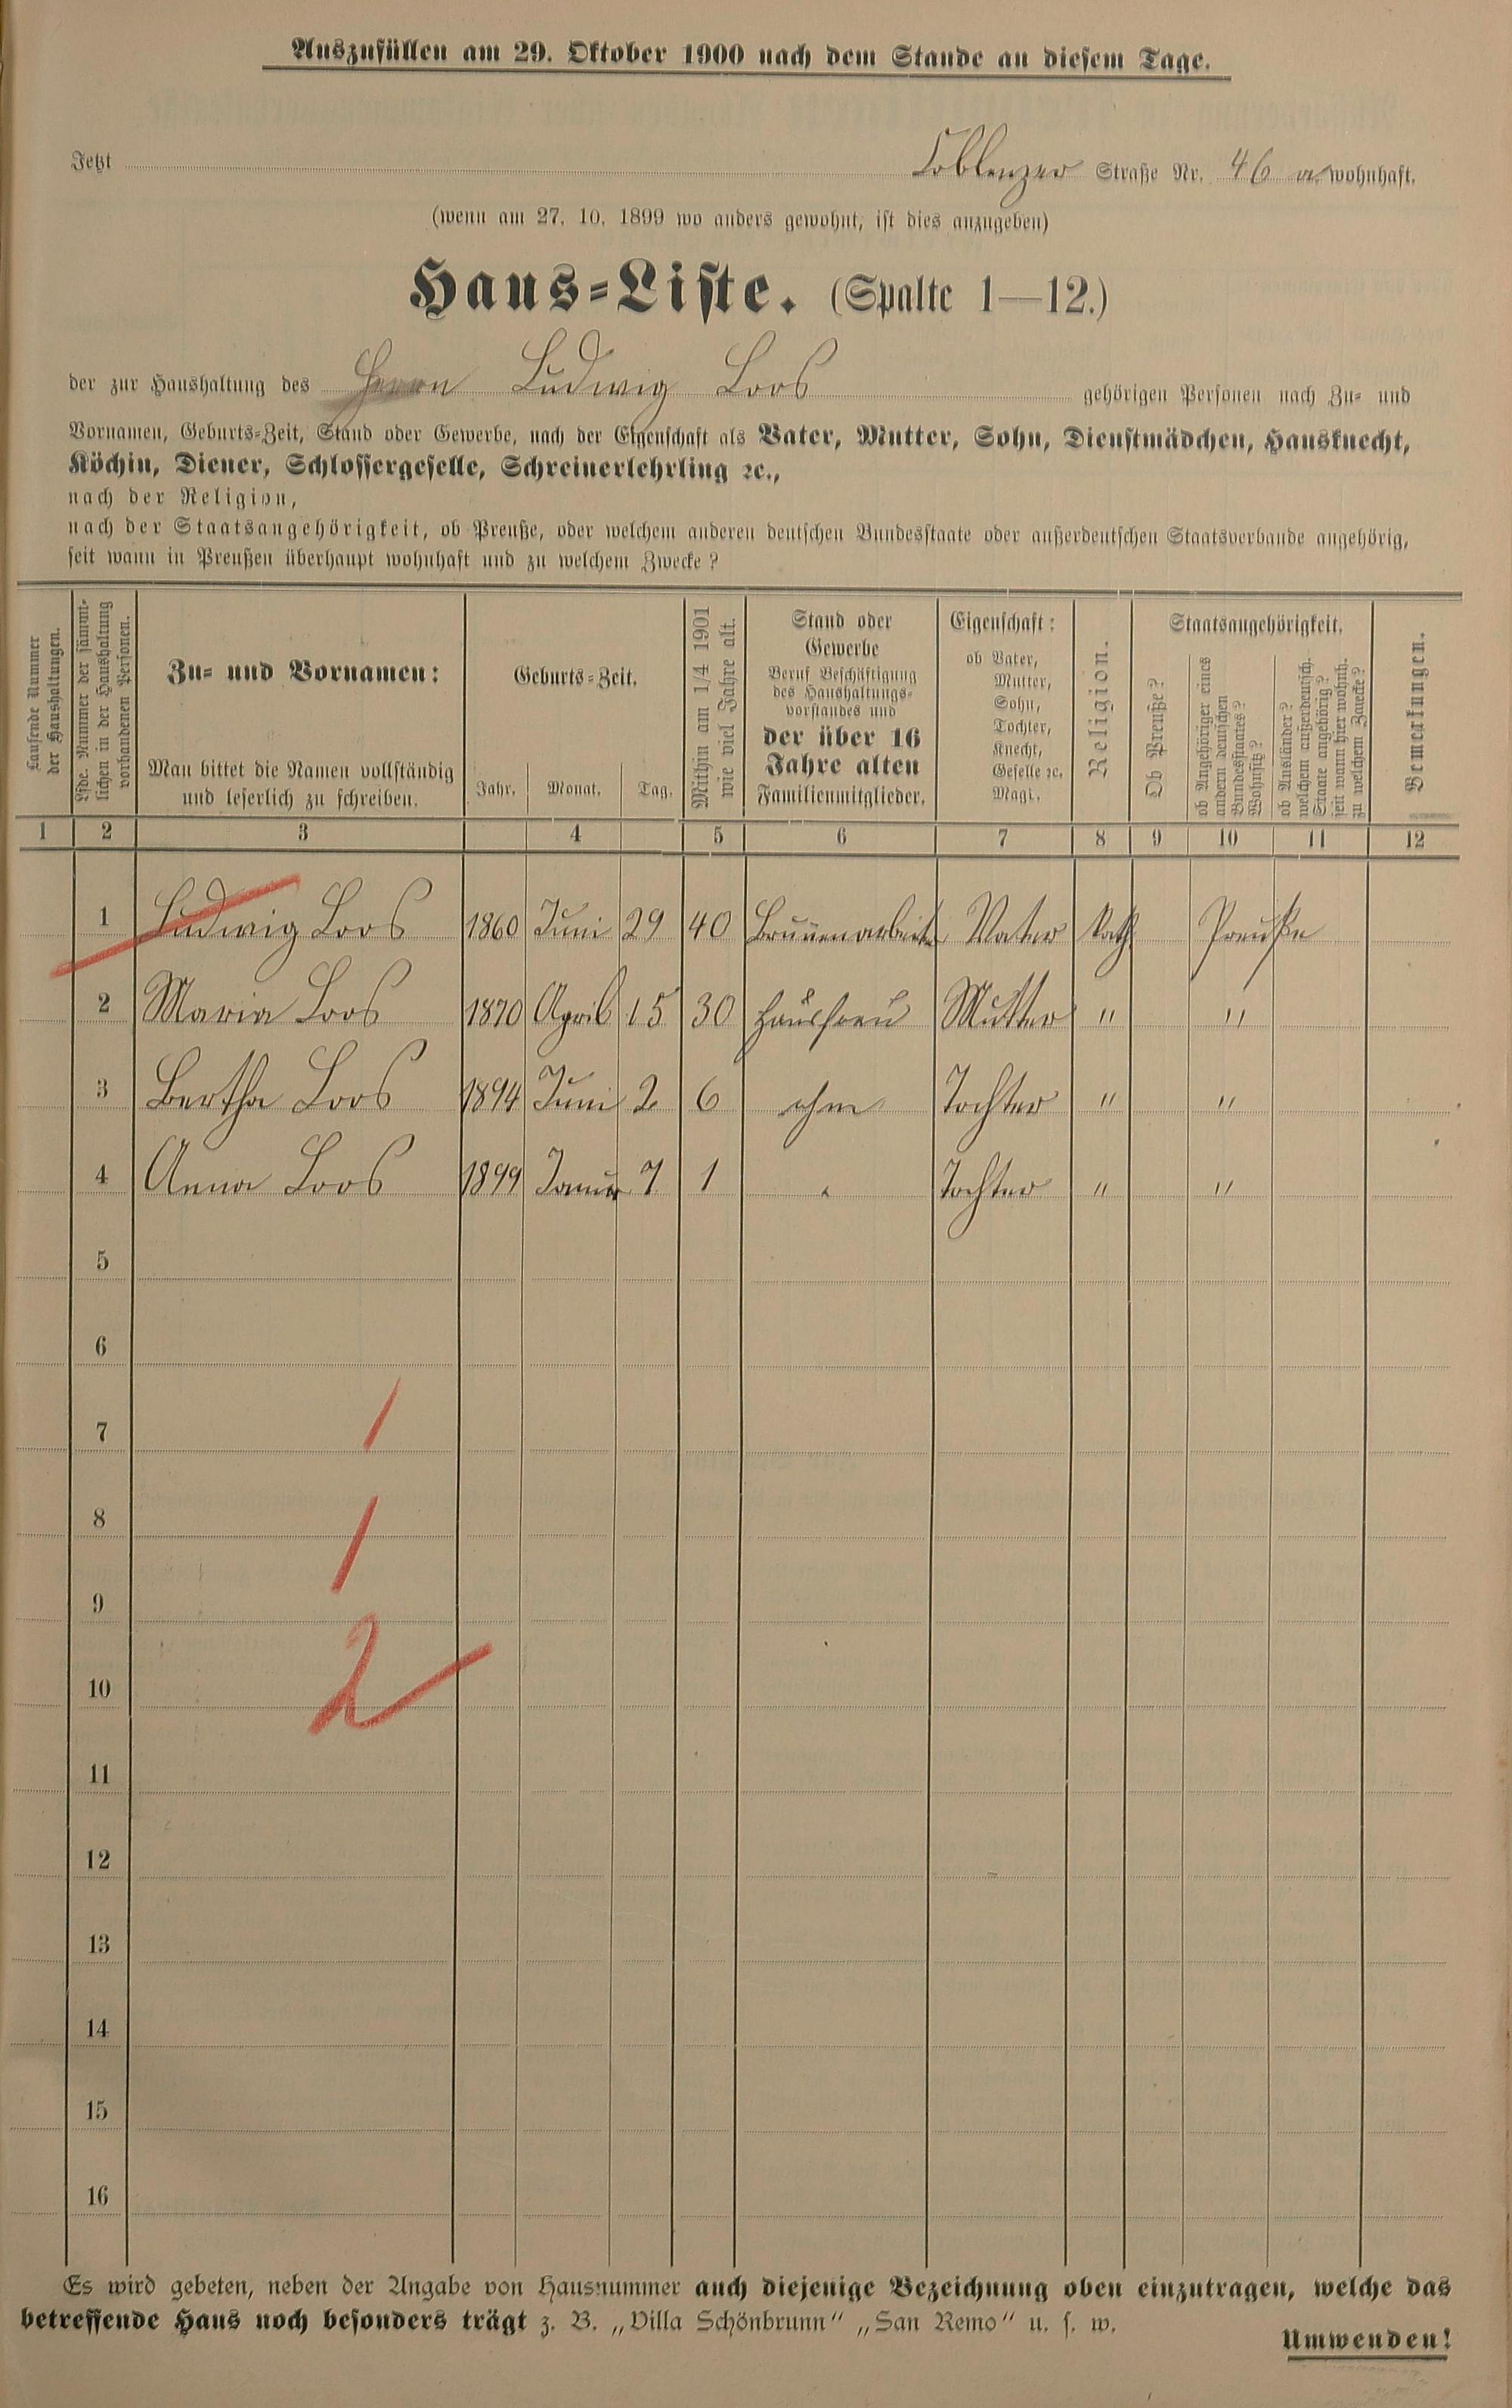 Auszufüllen am 29. Oktober 1900 nach dem Stande an diesem Tage.
Jetzt Coblenzer Straße Nr. 46 a wohnhaft.
(wenn am 27. 10. 1899 wo anders gewohnt, ist dies anzugeben)
Haus-Liste. (Spalte 1—12.)
der zur Haushaltung des Herrn Ludwig Loos gehörigen Personen nach Zu- und
Vornamen, Geburts-Zeit, Stand oder Gewerbe, nach der Eigenschaft als Vater, Mutter, Sohn, Dienstmädchen, Hausknecht,
Köchin, Diener, Schlossergeselle, Schreinerlehrling ꝛc.,
nach der Religion,
nach der Staatsangehörigkeit, ob Preuße, oder welchem anderen deutschen Bundesstaate oder außerdeutschen Staatsverbande angehörig,
seit wann in Preußen überhaupt wohnhaft und zu welchem Zwecke?
Laufende Nummer
der Haushaltungen.
Lfde. Nummer der sämmt-
lichen in der Haushaltung
vorhandenen Personen.
Zu- und Vornamen:
Man bittet die Namen vollständig
und leserlich zu schreiben.
Geburts-Zeit.
Jahr. Monat. Tag.
Mithin am 1/4 1901
wie viel Jahre alt.
Stand oder
Gewerbe
Beruf Beschäftigung
des Haushaltungs-
vorstandes und
der über 16
Jahre alten
Familienmitglieder.
Eigenschaft:
ob Vater,
Mutter,
Sohn,
Tochter,
Knecht,
Geselle ꝛc.
Magi.
Religion.
Staatsangehörigkeit.
Ob Preuße?
ob Angehöriger eines
andern deutschen
Bundesstaates?
Wohnsitz?
ob Ausländer?
welchem außerdeutsch.
Staate angehörig?
seit wann hier wohnh.
zu welchem Zwecke?
Bemerkungen.
1 2 3 4 5 6 7 8 9 10 11 12
1 Ludwig Loos 1860 Juni 29 40 Brunnenarbeiter Vater Kath Preuße
2 Maria Loos 1870 April 15 30 Hausfrau Mutter " "
3 Bertha Loos 1894 Juni 2 6 ohne Tochter " "
4 Anna Loos 1899 Januar 7 1 " Tochter " "
5
6
7 1
8 1
9
10 2
11
12
13
14
15
16
Es wird gebeten, neben der Angabe von Hausnummer auch diejenige Bezeichnung oben einzutragen, welche das
betreffende Haus noch besonders trägt z. B. „Villa Schönbrunn“ „San Remo“ u. s. w.
Umwenden!